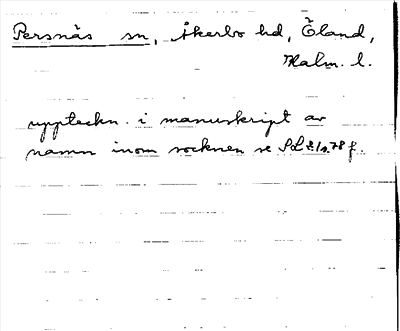 Persnäs sn, Åkerbo hd, Öland,
Kalm. l.
uppteckn. i manuskript av
namn inom socknen se